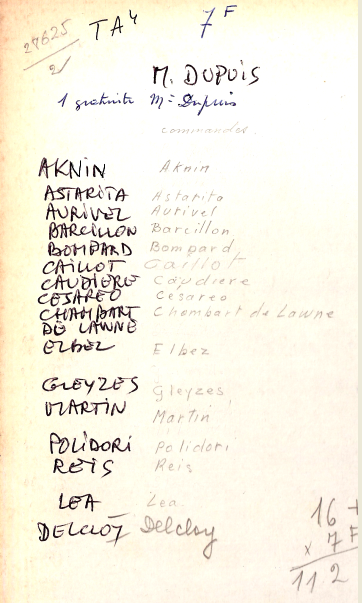 27625
2
TA4
7F
M. DUPUIS
1 gratuite Mr Dupuis
commandes.
AKNIN Aknin
ASTARITA Astarita
AURIVEL Aurivel
BARCILLON Barcillon
BOMPARD Bompard
CAILLOT Caillot
CAUDIERE Caudiere
CESAREO Cesareo
CHOMBART Chombart de Lawne
DE LAWNE
ELBEZ Elbez
GLEYZES Gleyzes
MARTIN Martin
POLIDORI Polidori
REIS Reis
LEA Lea
DELCLOY Delcloy
16 +
x 7 F
112